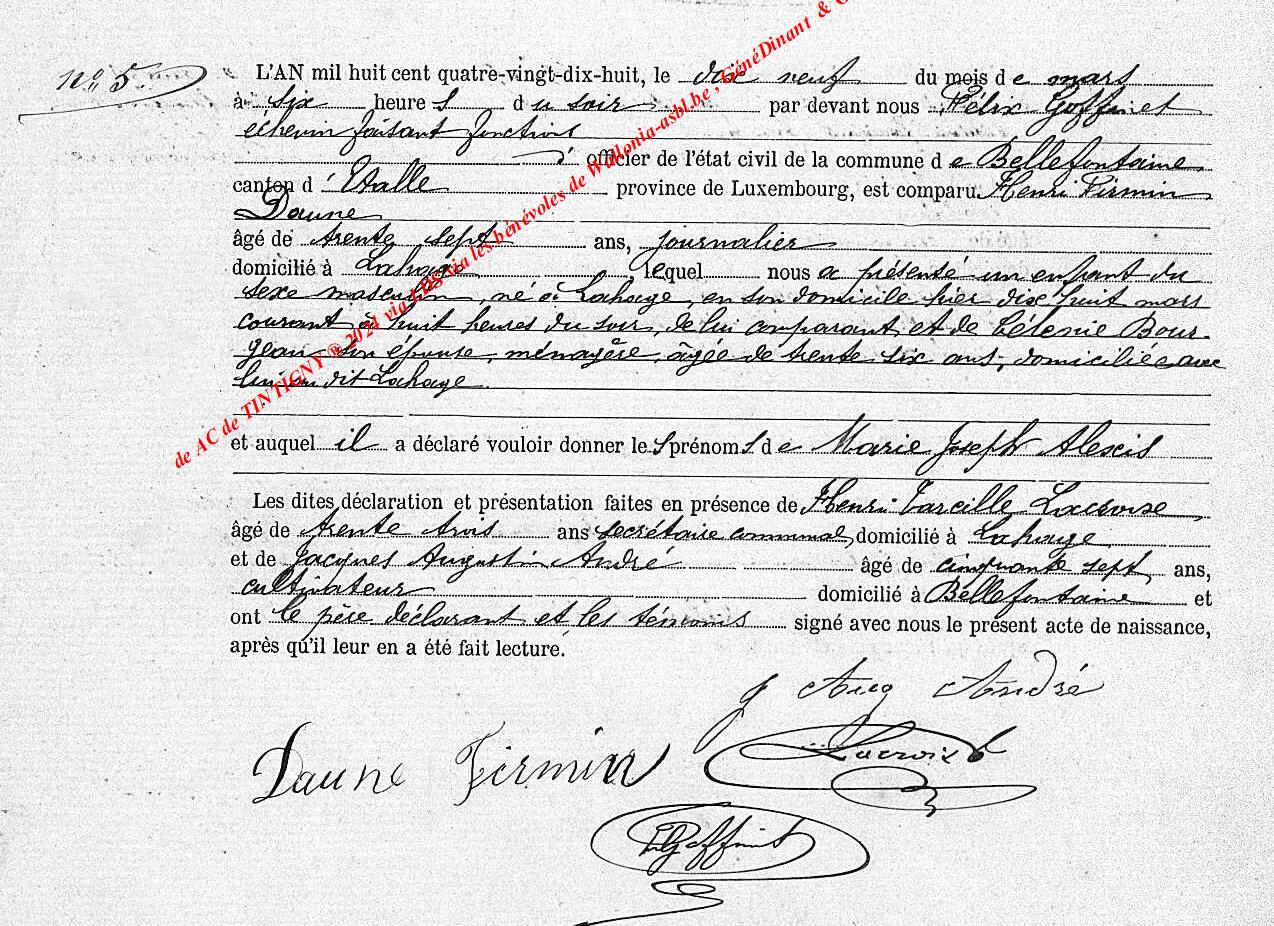 n° 5.
L'AN mil huit cent quatre-vingt-dix-huit, le dix neuf du mois de mars
à six heures du soir par devant nous Félix Goffinet
échevin faisant fonctions
d'officier de l'état civil de la commune de Bellefontaine
canton d'Etalle province de Luxembourg, est comparu Henri Firmin
Daune
âgé de trente sept ans, journalier
domicilié à Lahage, lequel nous a présenté un enfant du
sexe masculin, né à Lahage, en son domicile hier dix huit mars
courant à huit heures du soir, de lui comparant et de Célenie Bour-
gean son épouse, ménagère, âgée de trente six ans, domiciliée avec
lui au dit Lahage.
et auquel il a déclaré vouloir donner les prénoms de Marie Joseph Alexis
Les dites déclaration et présentation faites en présence de Henri Tarcille Lacroixe
âgé de trente trois ans secrétaire communal, domicilié à Lahage
et de Jacques Augustin André âgé de cinquante sept ans,
cultivateur domicilié à Bellefontaine et
ont le père déclarant et les témoins signé avec nous le présent acte de naissance,
après qu'il leur en a été fait lecture.
J Aug André
Daune Firmin Lacroix
Goffinet
de AC de TINTIGNY ® 2021 via les bénévoles de Wallonia-asbl.be, GénéDinant & G